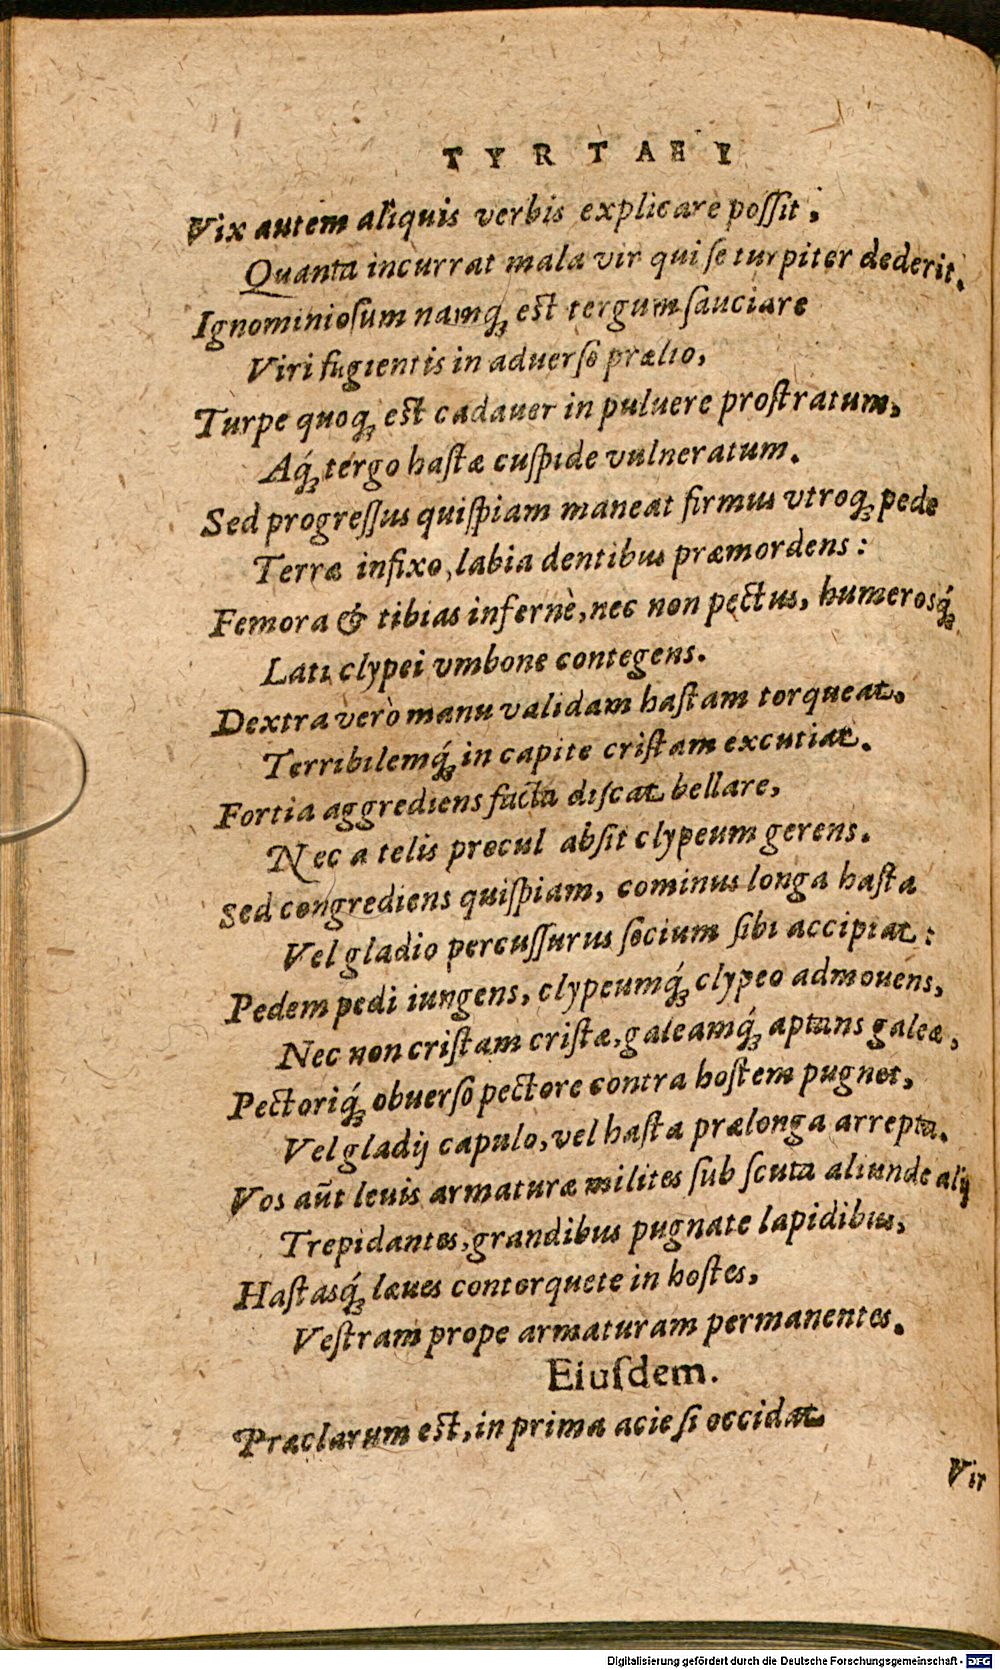 TYRTAEI
Vix autem aliquis verbis explicare poſſit,
Quanta incurrat mala vir qui ſe turpiter dederit.
Ignominioſum namq́ꝫ eſt tergum ſauciare
Viri fugientis in aduerſo prælio,
Turpe quoqꝫ eſt cadauer in puluere proſtratum,
Aq́ꝫ tergo haſtæ cuſpide vulneratum.
Sed progreſſus quiſpiam maneat firmus vtroqꝫ pede
Terræ infixo, labia dentibus præmordens:
Femora & tibias infernè, nec non pectus, humerosq́ꝫ
Lati clypei vmbone contegens.
Dextra verò manu validam haſtam torqueat.
Terribilemq́ꝫ in capite criſtam excutiat.
Fortia aggrediens facta diſcat bellare,
Nec a telis procul abſit clypeum gerens.
Sed congrediens quiſpiam, cominus longa haſta
Vel gladio percuſſurus ſocium ſibi accipiat:
Pedem pedi iungens, clypeumq́ꝫ clypeo admouens,
Nec non criſtam criſtæ, galeamq́ꝫ aptans galeæ,
Pectoriq́ꝫ obuerſo pectore contra hoſtem pugnet,
Vel gladij capulo, vel haſta prælonga arrepta.
Vos aūt leuis armaturæ milites ſub ſcuta aliunde alij
Trepidantes, grandibus pugnate lapidibus,
Haſtasq́ꝫ læues contorquete in hoſtes,
Veſtram prope armaturam permanentes.
Eiuſdem.
Præclarum eſt, in prima acie ſi occidat
Vir
Digitalisierung gefördert durch die Deutsche Forschungsgemeinschaft - DFG